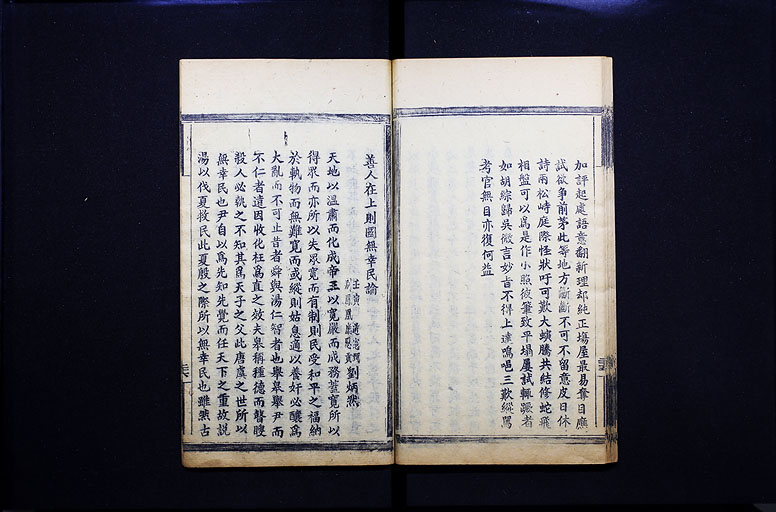 加評起處語意翻新理却純正場屋最易奪目應
試欲爭前茅此等地方斷斷不可不留意皮日休
詩兩松峙庭際怪狀吁可歎大螾騰共結修蛇飛
相盤可以爲是作小照彼筆致平塌屢試輒躓者
如胡綜歸吳微言妙旨不得上達嗚唈三歎縱罵
考官無目亦復何益
善人在上則國無幸民論
劉炳然
天地以溫肅而化成帝王以寬嚴而成務蓋寬所以
得衆而亦所以失衆寬而有制則民受和平之福納
於軌物而無難寬而或縱則姑息適以養奸必釀爲
大亂而不可止昔者舜與湯仁智者也舉皋舉尹而
不仁者遠因收化枉爲直之效夫皋稱種德而瞽瞍
殺人必執之不知其爲天子之父此唐虞之世所以
無幸民也尹自以爲先知先覺而任天下之重故説
湯以伐夏救民此夏殷之際所以無幸民也雖然古